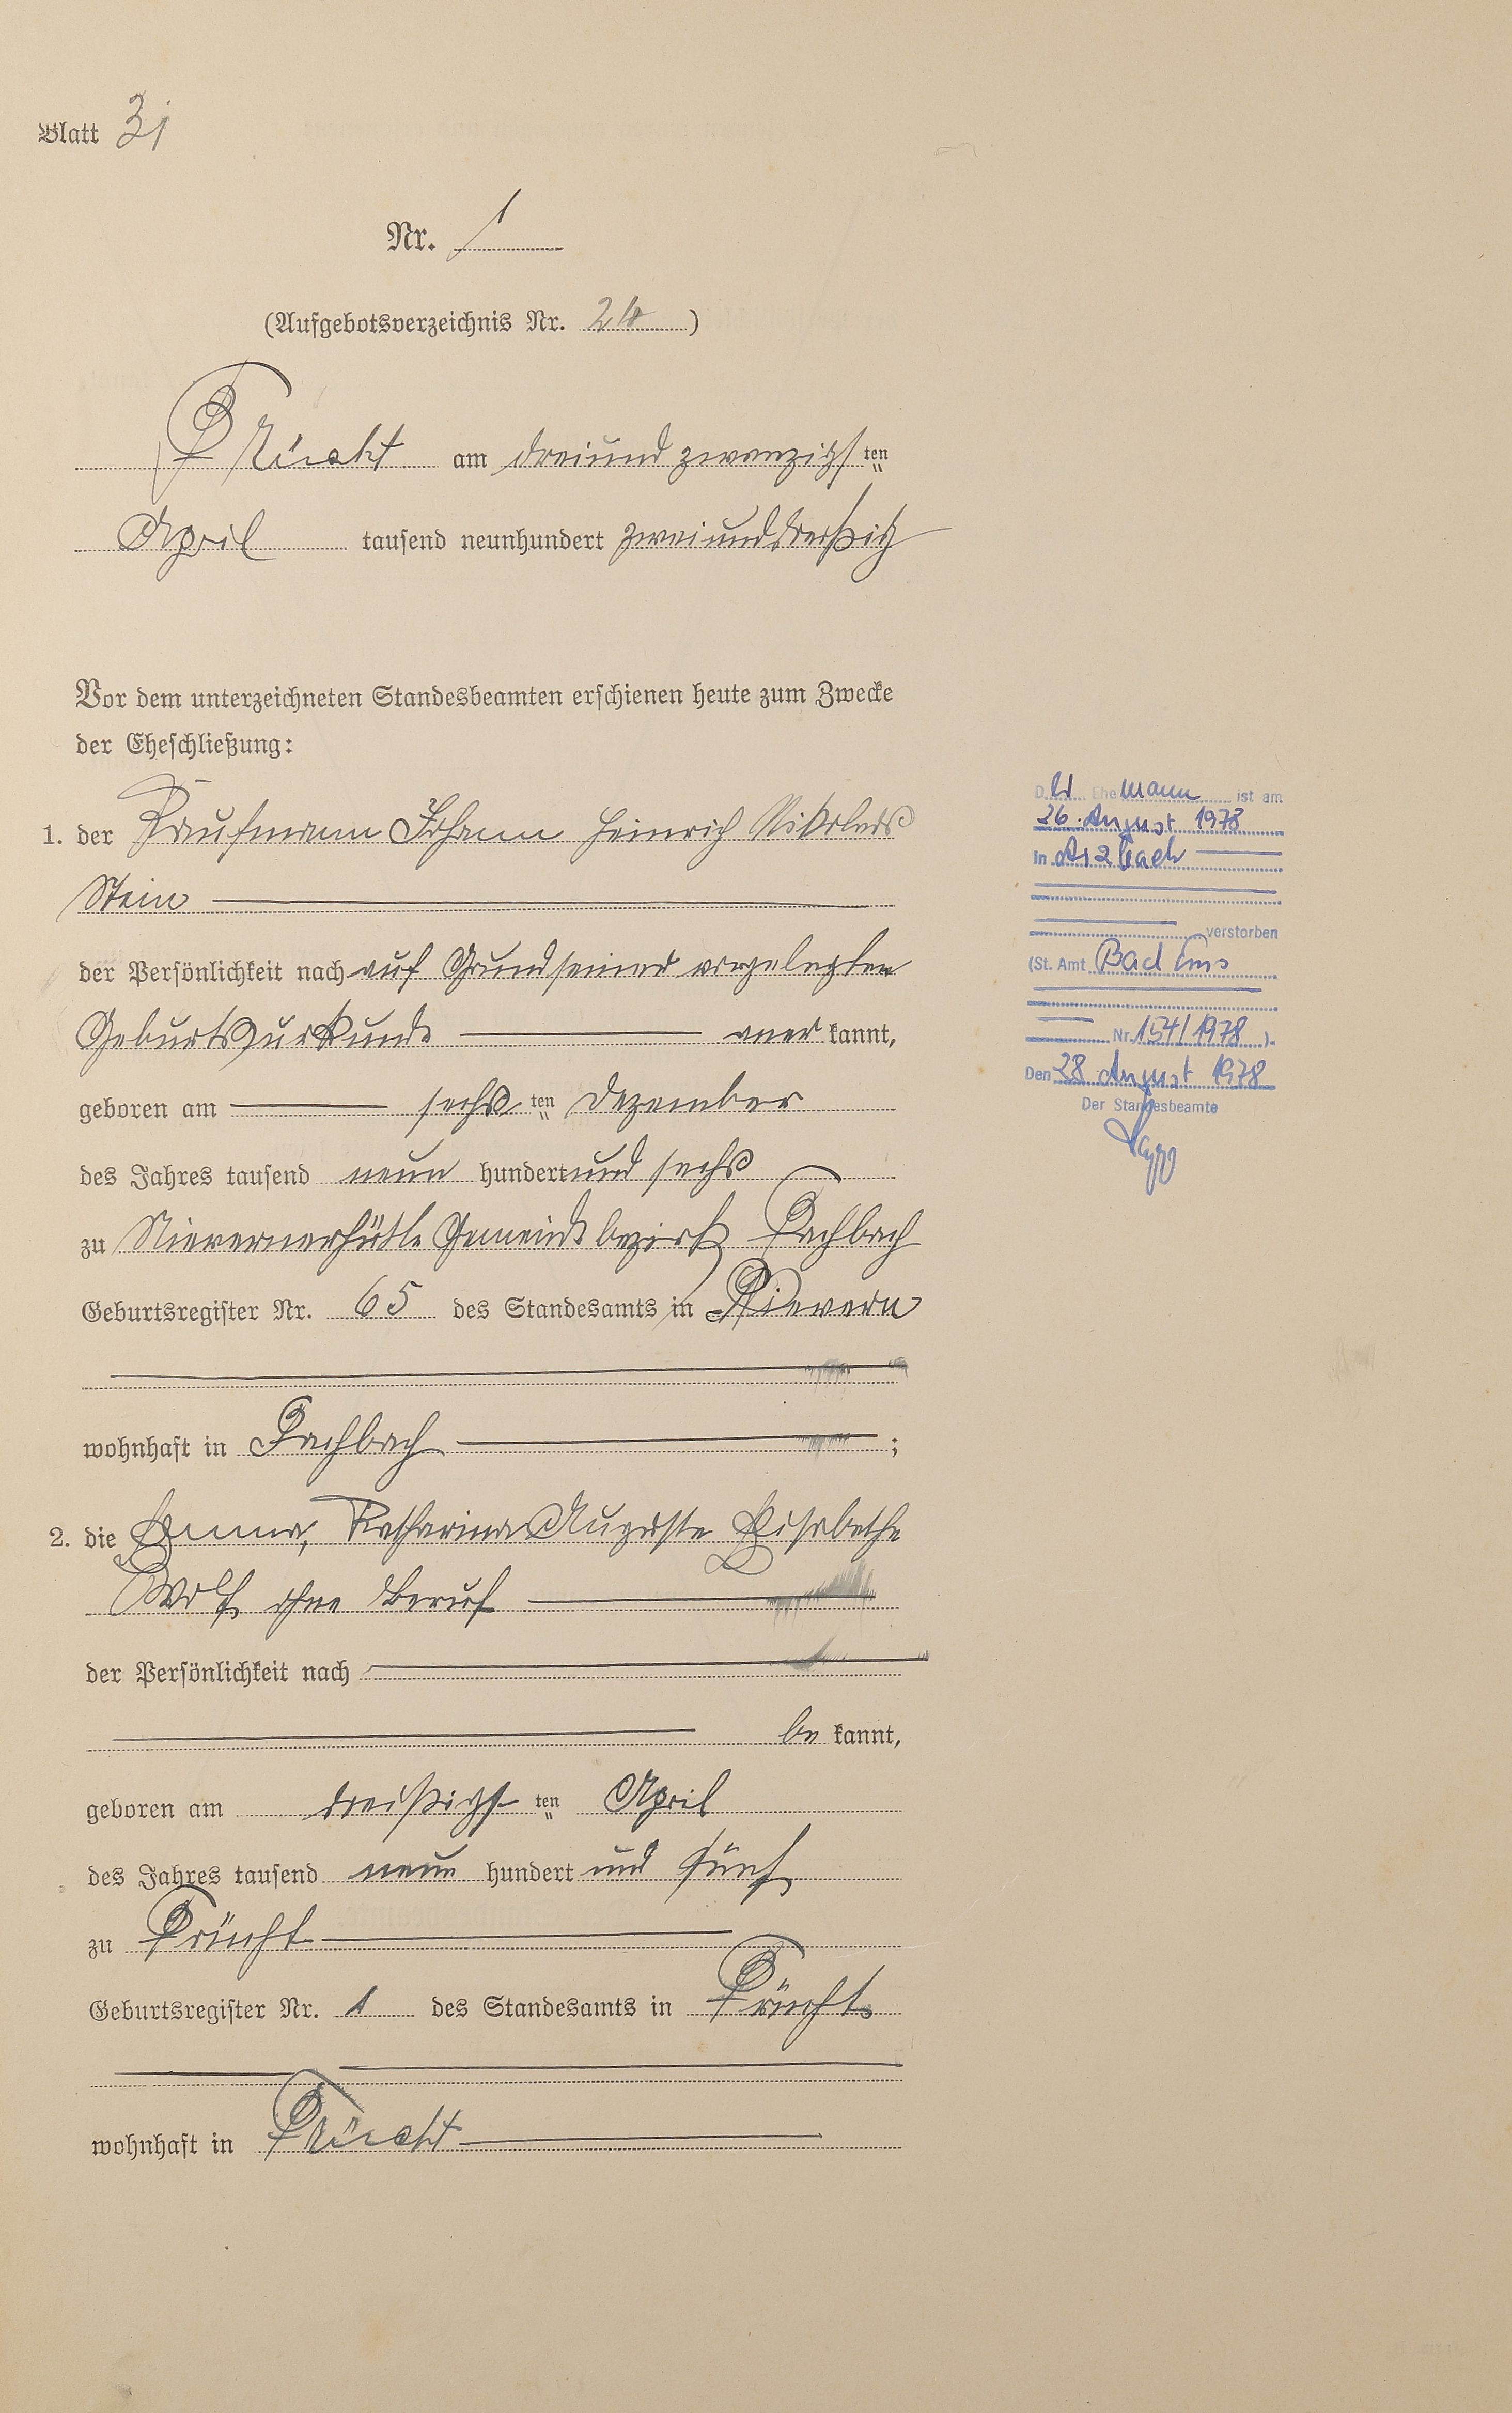 Blatt 31
Nr. 1
(Aufgebotsverzeichnis Nr. 2)
Frücht am dreiundzwanzigsten
April tausend neunhundert zweiunddreißig
Vor dem unterzeichneten Standesbeamten erschienen heute zum Zwecke
der Eheschließung:
1. der Kaufmann Johann Heinrich Nikolaus
Stein
der Persönlichkeit nach auf Grund seiner vorgelegten
Geburtszurkunde anerkannt,
geboren am sechsten Dezember
des Jahres tausend neunhundert und sechs
zu Nievernerhütte Gemeindebezirk Fachbach
Geburtsregister Nr. 65 des Standesamts in Nievern
wohnhaft in Fachbach ;
2. die Emma, Katharina Auguste Elisabethe
Wolf, ohne Beruf
der Persönlichkeit nach
bekannt,
geboren am dreißigsten April
des Jahres tausend neunhundert und fünf
zu Frücht
Geburtsregister Nr. 1 des Standesamts in Frücht
wohnhaft in Frücht
Der Ehemann ist am
26. August 1978
in Arzbach
verstorben
(St. Amt Bad Ems
Nr. 154/1978 ).
Den 28 August 1978
Der Standesbeamte